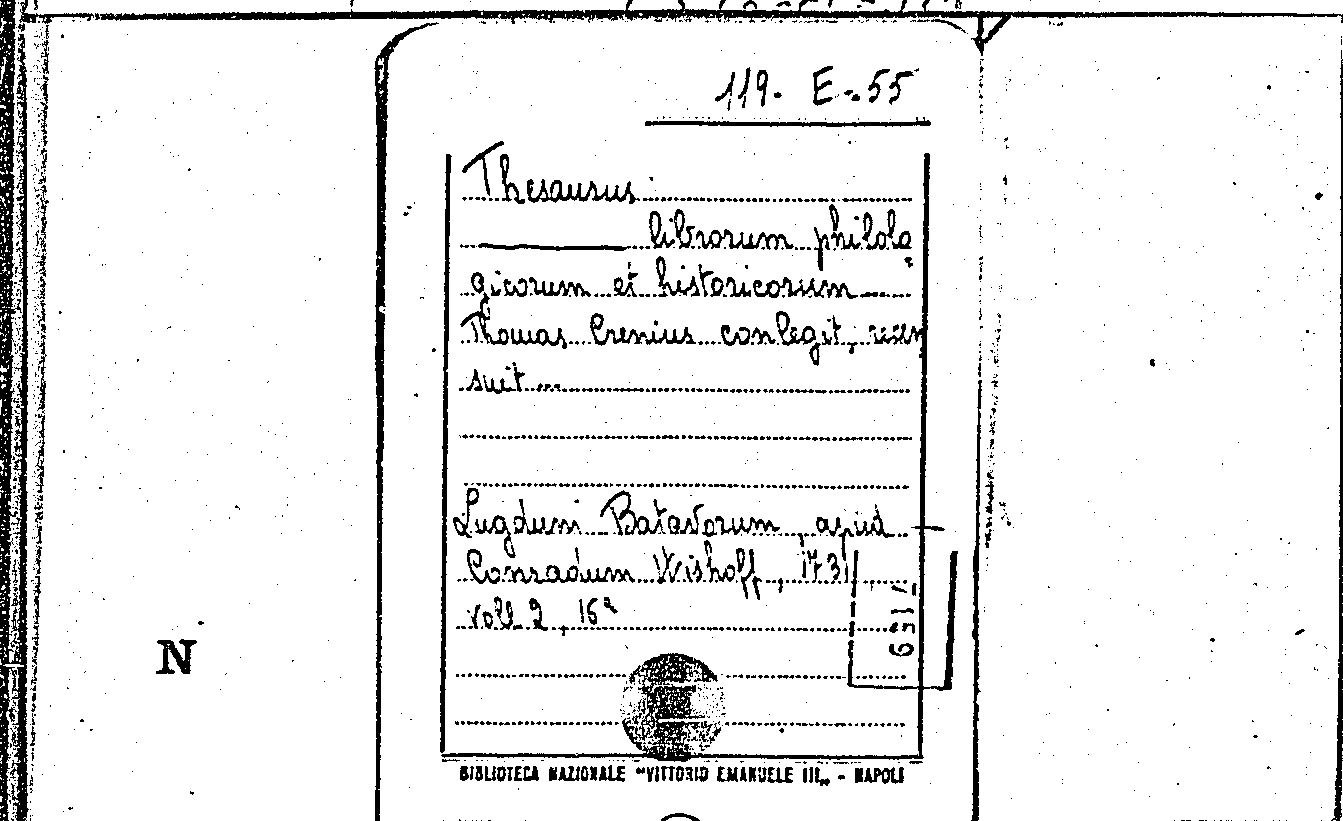 119. E-.55
Thesaurus
librorum philolo
gicorum et historicorum ....
Thomas Crenius conlegit, recen
suit ....
Lugduni Batavorum, apud
Conradum Wishoff, 1731
voll. 2, 16º
N
BIBLIOTECA NAZIONALE "VITTORIO EMANUELE III„ - NAPOLI